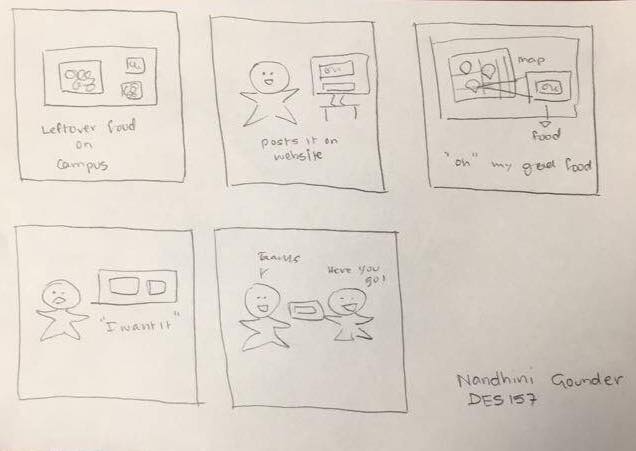 Leftover food
on
campus
posts it on
website
map
food
"oh" my good food
"I want it"
Thanks
Here you
go!
Nandhini Gounder
DES 157